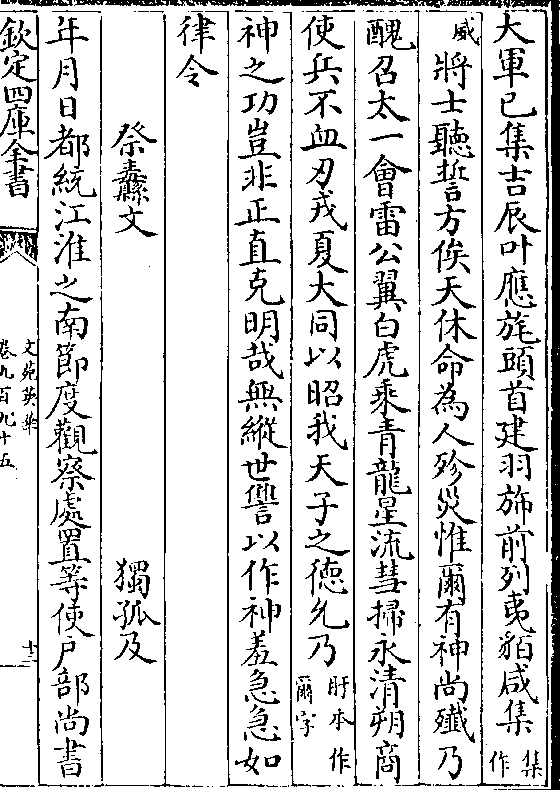 大軍已集吉辰叶應旄頭首建羽斾前列夷貊咸集集作
威將士聽誓方俟天休命為人殄災惟爾有神尚殲乃
醜召太一會雷公翼白虎乘青龍星流彗掃永清朔裔
使兵不血刃戎夏大同以昭我天子之德允乃盱本作爾字
神之功豈非正直克明哉無縱世讐以作神羞急急如
律令
祭纛文
獨孤及
年月日都統江淮之南節度觀察處置等使户部尚書
欽定四庫全書
文苑英華
卷九百九十五
十三